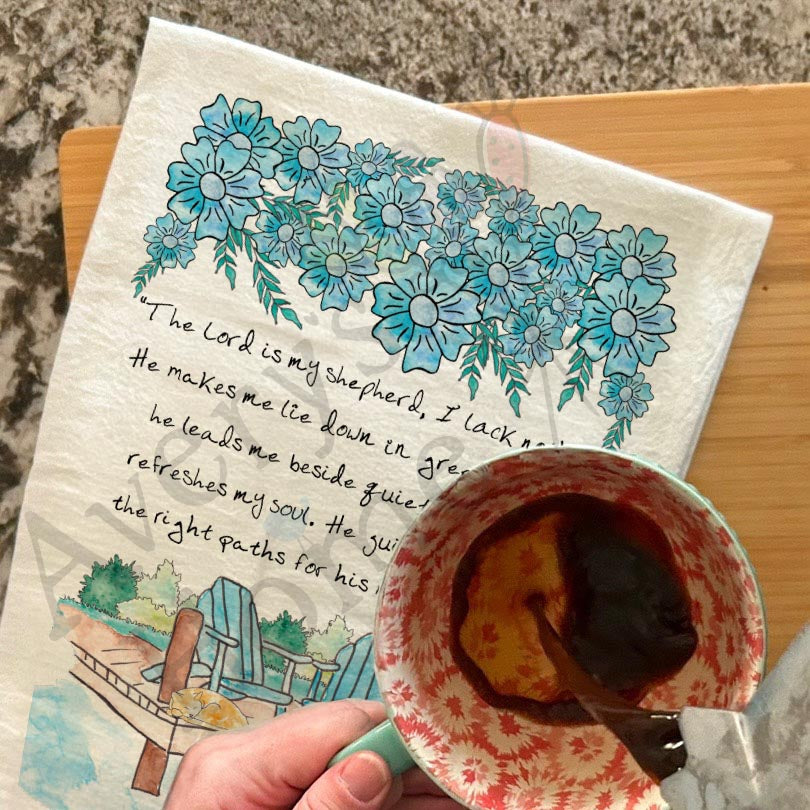 "The Lord is my shepherd, I lack
He makes me lie down in
he leads me beside quiet
refreshes my soul. He
the right paths for his
Avery's